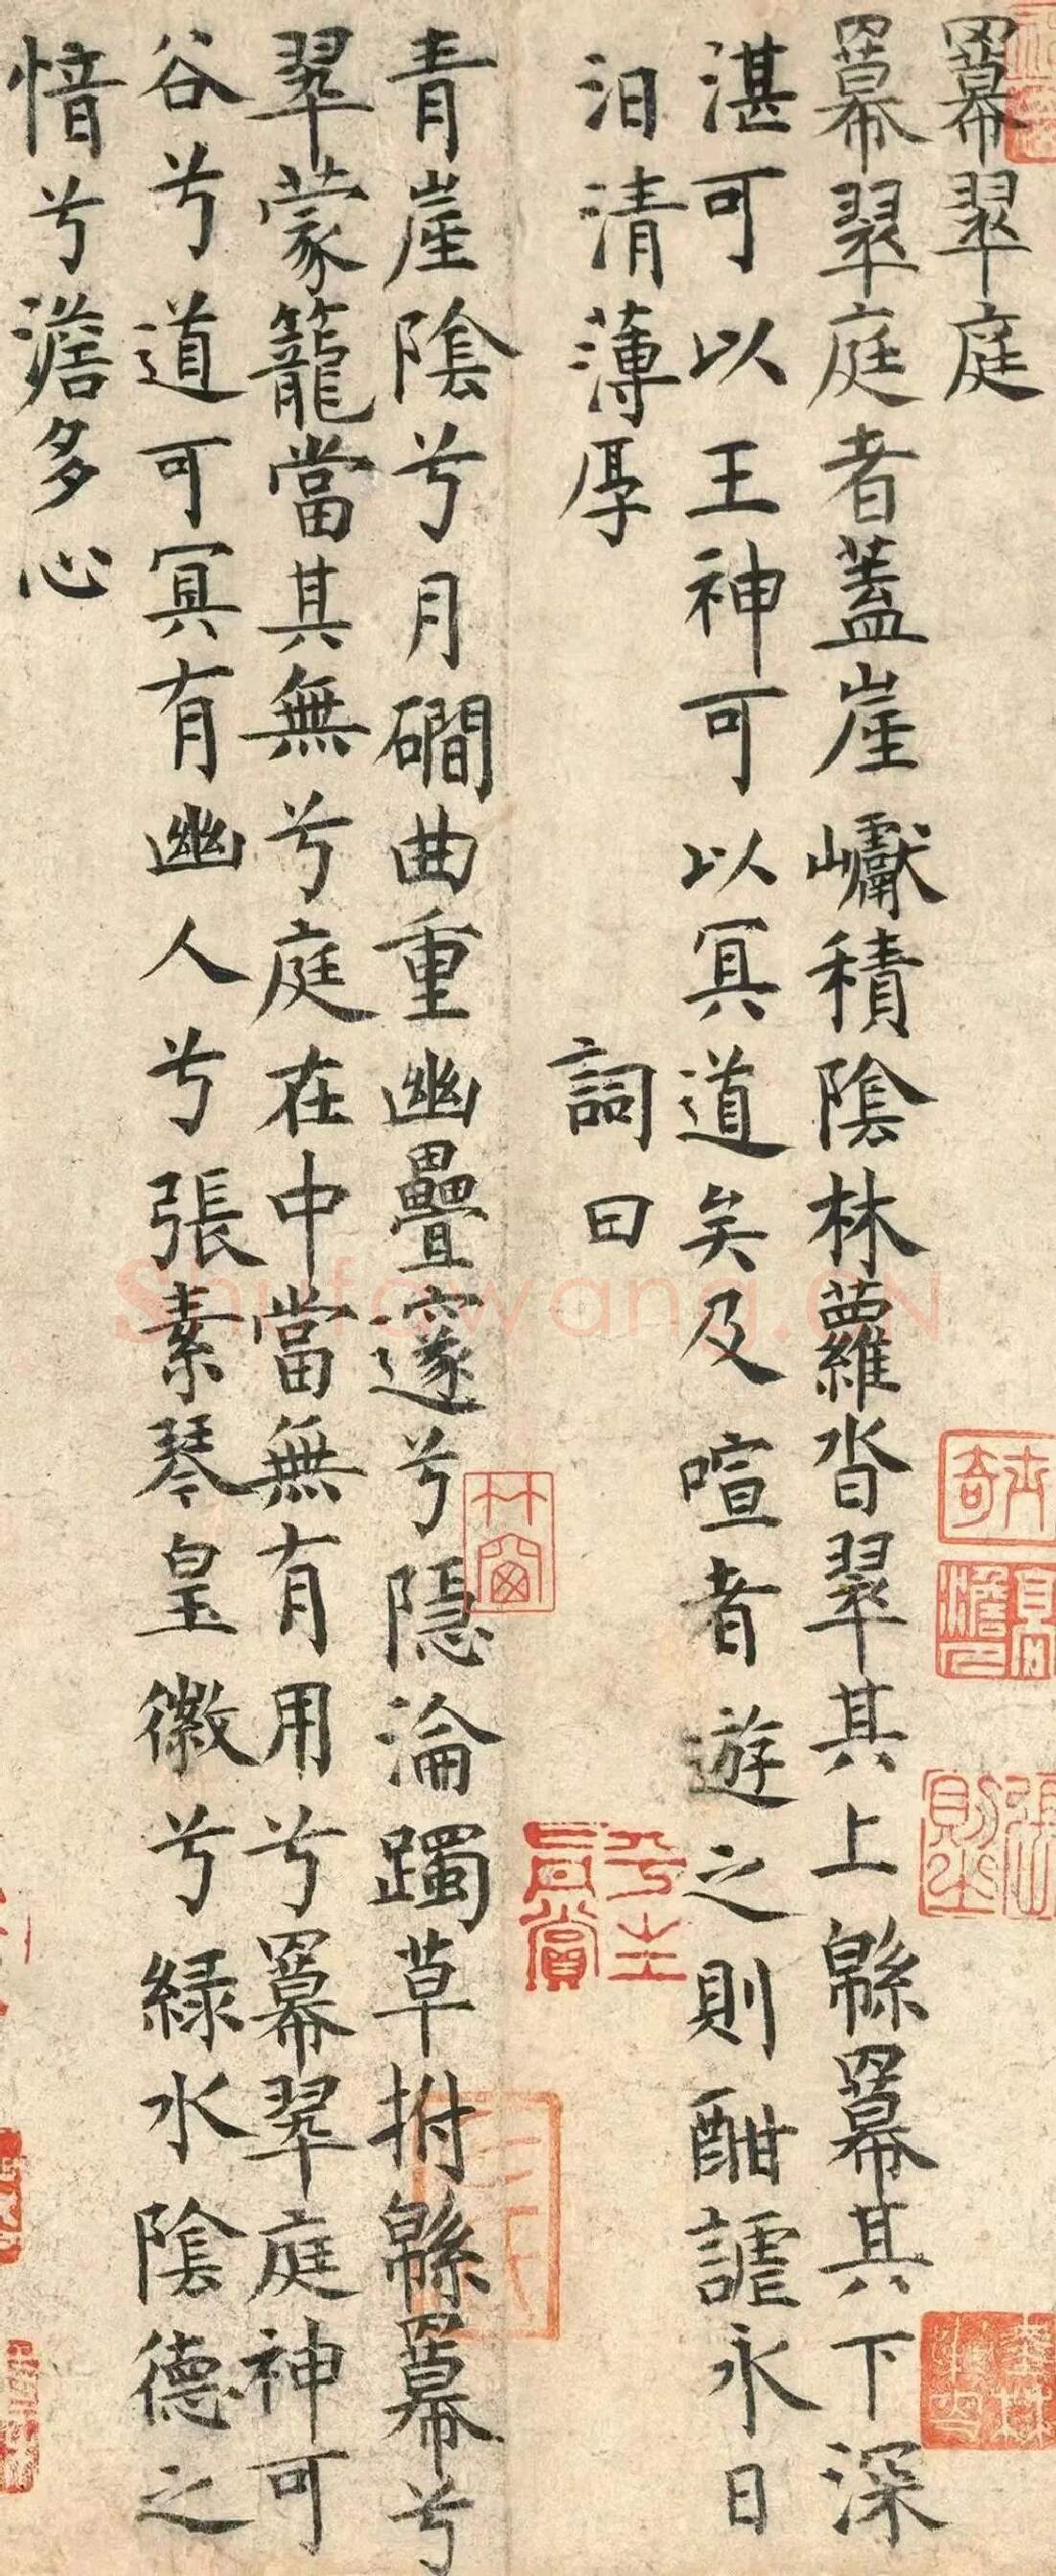 羃翠庭
羃翠庭者蓋崖巘積陰林蘿沓翠其上緜羃其下深
湛可以王神可以冥道矣及喧者遊之則酣謔永日
汨清薄厚 詞曰
青崖陰兮月磵曲重幽疊邃兮隱淪躅草拊緜羃兮
翠蒙籠當其無兮庭在中當無有用兮羃翠庭神可
谷兮道可冥有幽人兮張素琴皇徽兮緑水陰德之
愔兮澹多心
Shufawang.CN